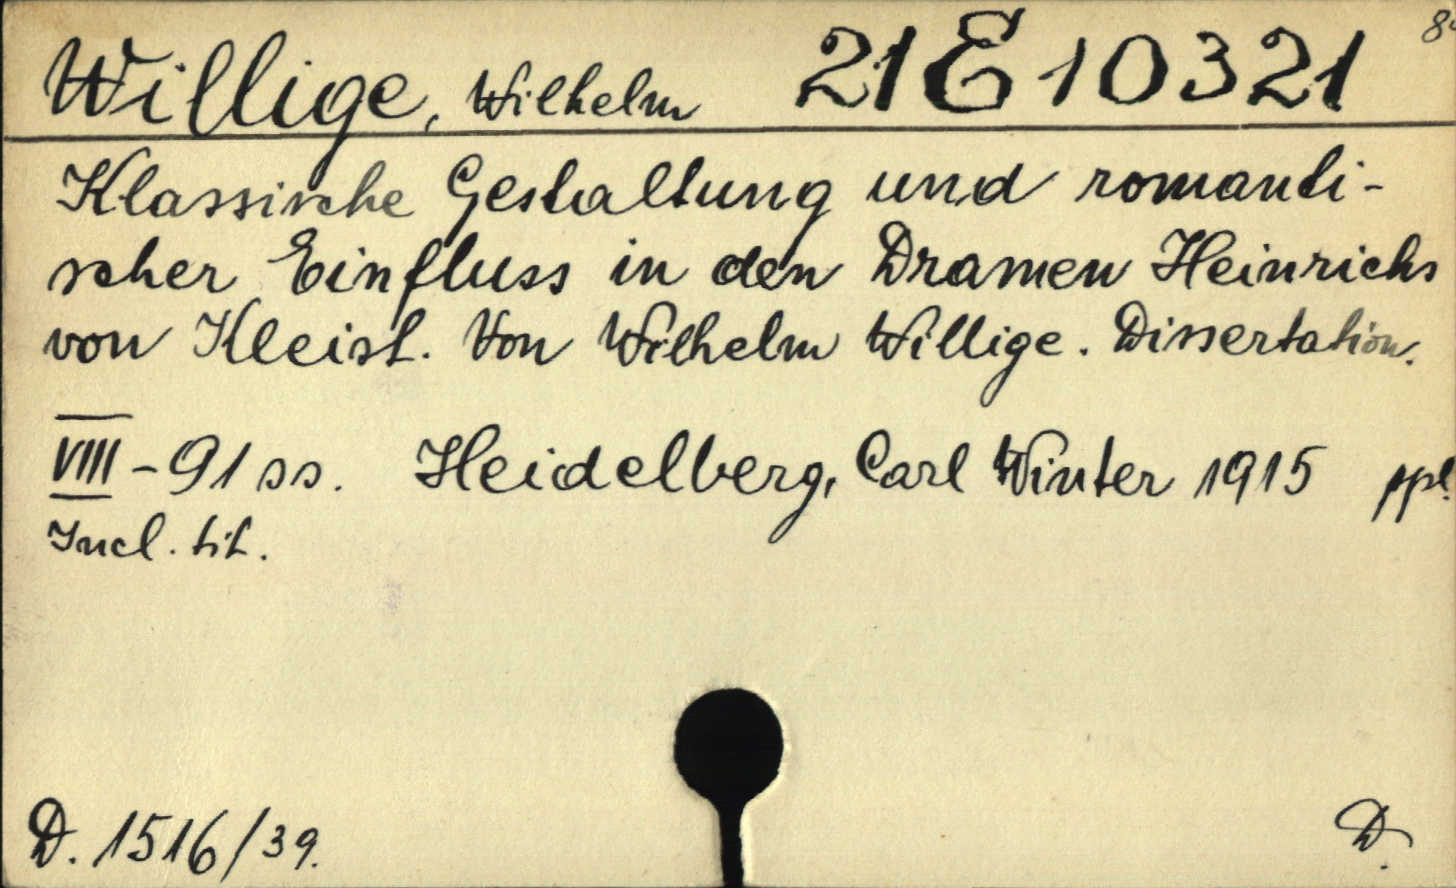 Willige, Wilhelm 21 E 10321
Klassische Gestaltung und romanti-
scher Einfluss in den Dramen Heinrichs
von Kleist. Von Wilhelm Willige. Dissertation.
VIII - 91 ss. Heidelberg, Carl Winter 1915 ppl.
Incl. tit.
D. 1516/39. D.